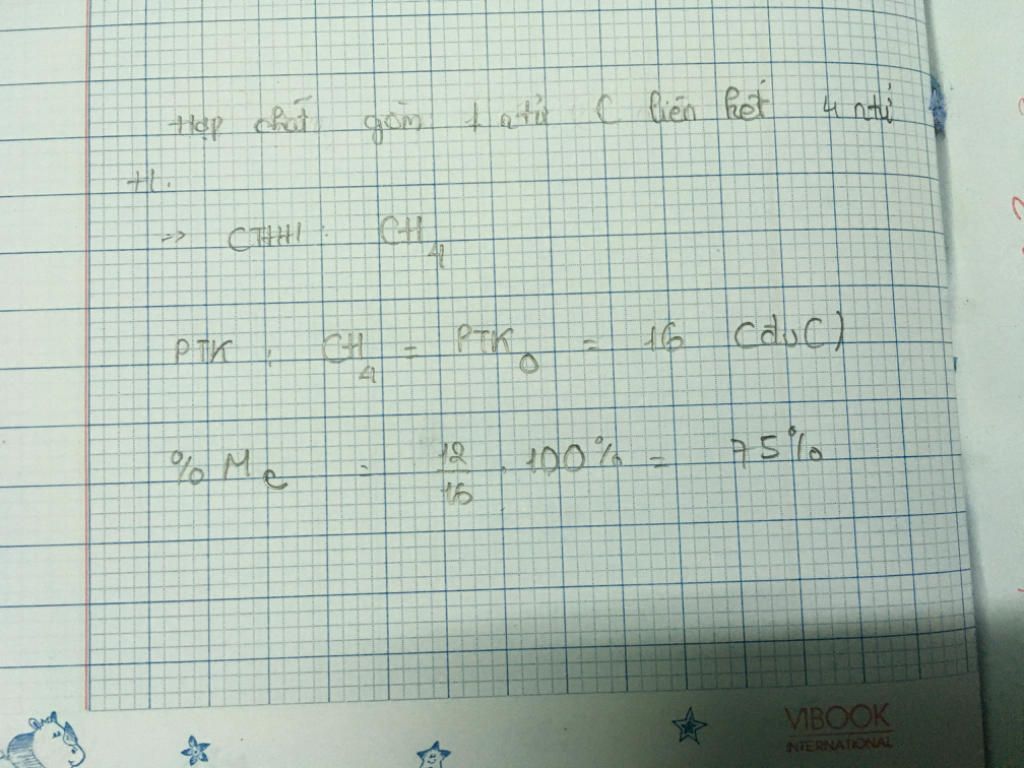 Hợp chất gồm 1 ntử C liên kết 4 ntử
H.
-> CTHH: CH4
PTK: CH4 = PTKO = 16 (đvC)
% MC = 12/16 . 100% = 75%
VIBOOK
INTERNATIONAL